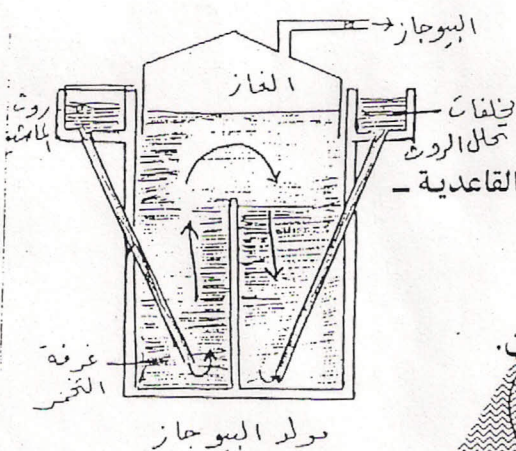 البيوجاز
الغاز
روث
الماشية
مخلفات
تحلل الروث
القاعدية –
ن.
غرفة
التخمر
مولد البيوجاز